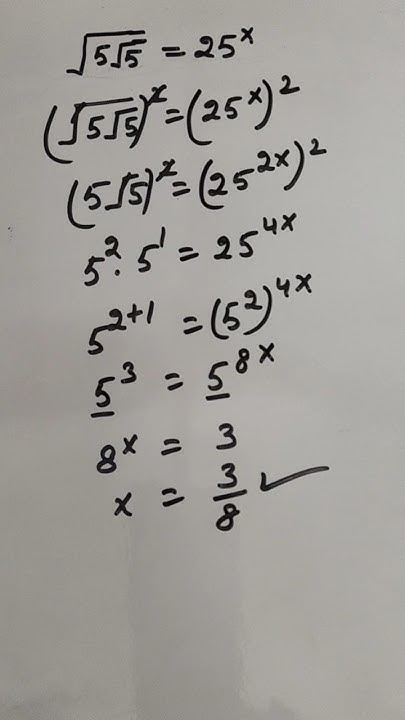 √(5√5) = 25^x
(√(5√5))^2 = (25^x)^2
(5√5)^2 = (25^(2x))^2
5^2 · 5^1 = 25^(4x)
5^(2+1) = (5^2)^(4x)
5^3 = 5^(8x)
8^x = 3
x = 3/8 ✓